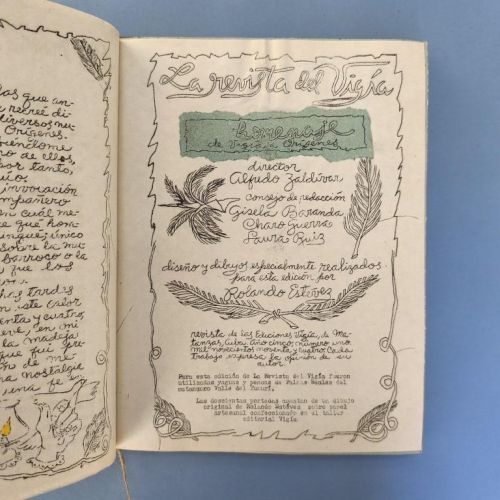 as que an-
recreé di-
diversos nu-
Orígenes.
o de ellos,
por tanto,
invocación
compañero
n cuál me-
e que hom-
ingue; único
sobre la mu-
barroco o la
fue los
has tardes
este calor
enta y cuatro,
eve, en mi
la madeja
que fui
de me-
nostalgie
una fe
La revista del Vigía
homenaje
de Vigía a Orígenes
director
Alfredo Zaldívar
consejo de redacción
Gisela Baranda
Charo Guerra
Laura Ruiz
diseño y dibujos especialmente realizados
para esta edición por
Rolando Estévez
revista de las Ediciones Vigía, de Ma-
tanzas, Cuba año cinco, número uno
mil novecientos noventa y cuatro. Cada
trabajo expresa la opinión de su
autor
Para esta edición de La Revista del Vigía fueron
utilizadas yaguas y pencas de Palmas Reales del
matancero Valle del Yumurí.
Las doscientas portadas cuentan de un dibujo
original de Rolando Estévez sobre papel
artesanal confeccionado en el taller
editorial Vigía